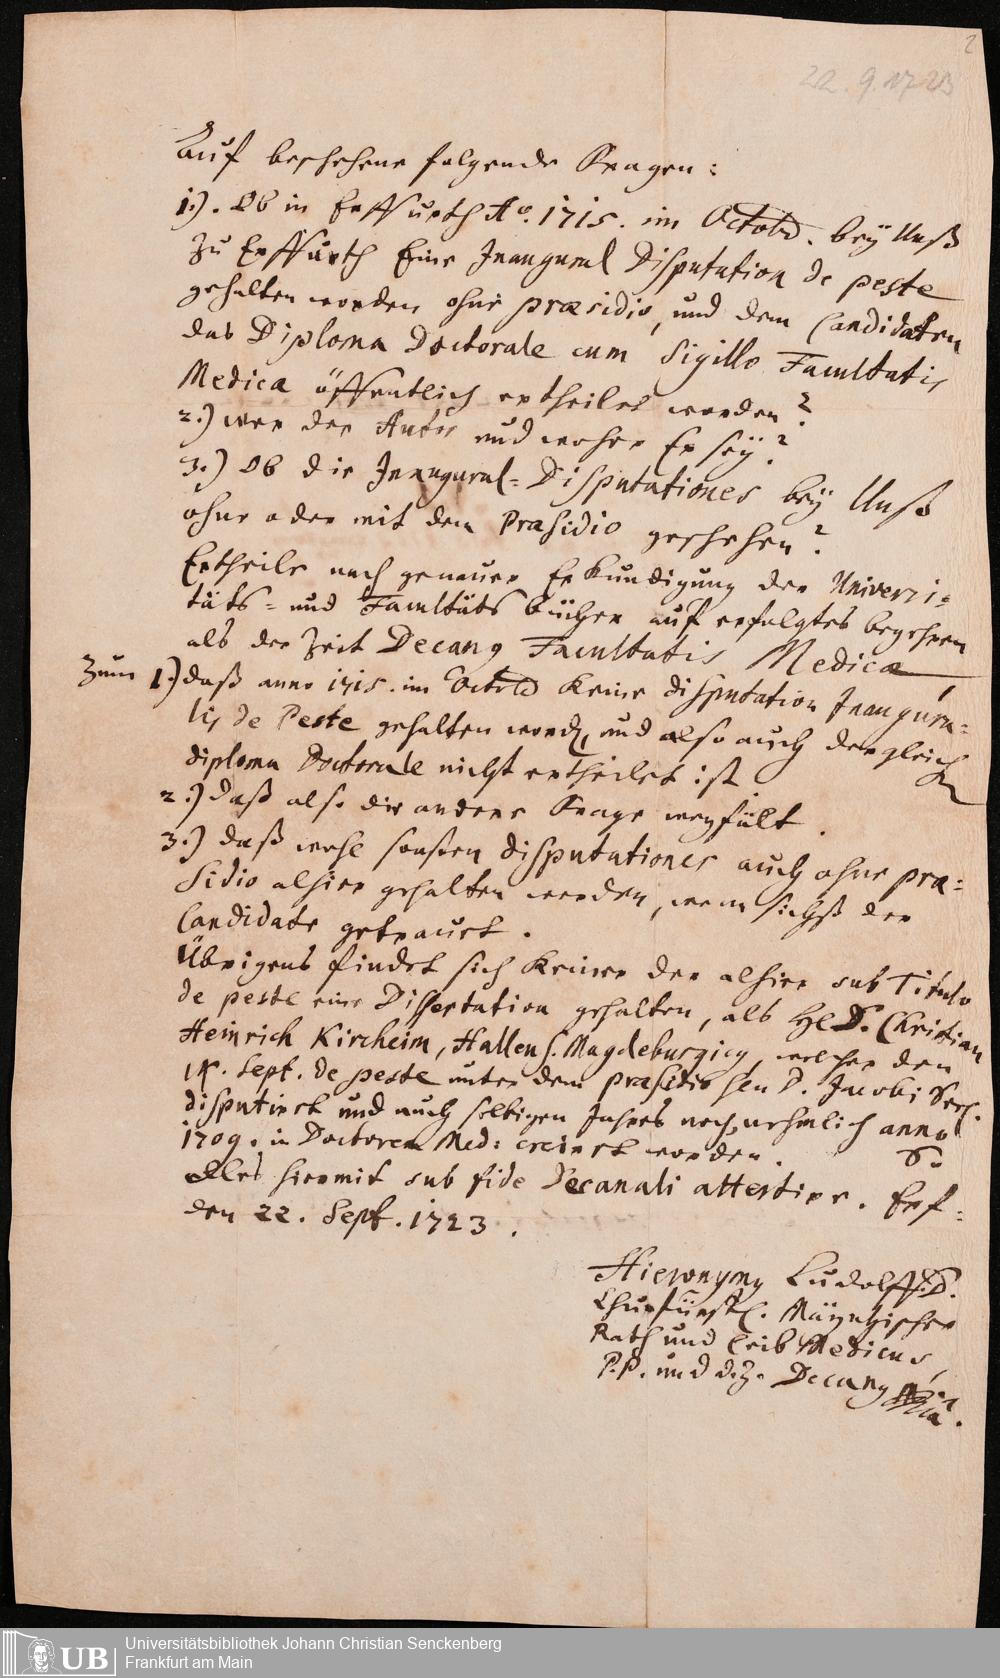 2
22.9.1723
Auf beschehene folgende Fragen:
1.). Ob in Erffurth Aº. 1715. im Octobr. bey Unß
zu Erffurth Eine Inaugural Disputation de peste
gehalten worden ohne præsidio, und dem Candidaten
das Diploma Doctorale cum Sigillo Facultatis
Medicæ öffentlich ertheilet worden?
2.) wer der Autor und woher Er sey?
3.) Ob die Inaugural-Disputationes bey Unß
ohne oder mit dem Præsidio geschehen?
Ertheile nach genauer Erkundigung der Universi=
täts= und Facultäts bücher auf erfolgtes begehren
als der Zeit Decanus Facultatis Medicæ
Zum 1.) daß anno 1715. im Octobr keine disputation Inaugura=
lis de Peste gehalten word, und also auch dergleich
diploma Doctorale nicht ertheilet ist
2.) daß also die andere Frage wegfält.
3.) daß wohl sonsten disputationes auch ohne præ=
sidio alhier gehalten werden, wenn sichß der
Candidate getrauet.
Übrigens findet sich keiner der alhier sub Titulo
de peste eine Dissertation gehalten, als H. D. Christian
Heinrich Kircheim, Hallens. Magdeburgicus, welcher den
14. Sept. de peste unter dem præsidio D. Jacobi
disputiert und auch selbigen Jahres noch, nehmlich anno
1709. in Doctorem Med: creiert worden. So
alles hiermit sub fide Decanali attestire. Erf=
den 22. Sept. 1723.
Hieronymus Ludolff. D.
Churfürstl. Mayntzischer
Rath und Leib Medicus,
P.P. und d.z. Decanus